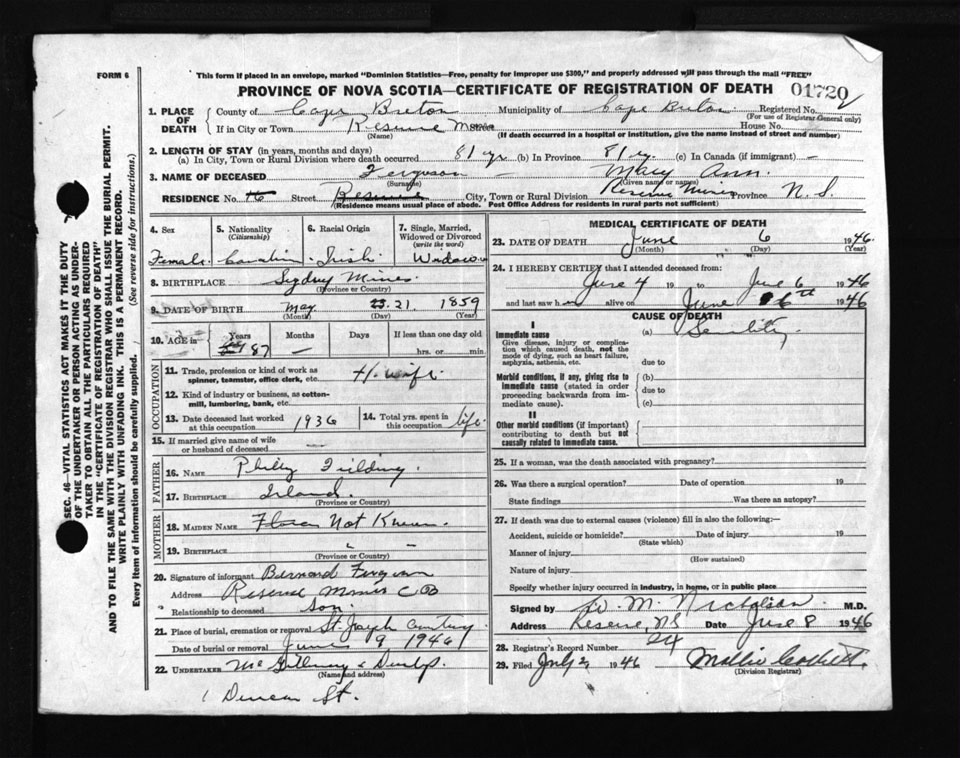 FORM 6
This form if placed in an envelope, marked "Dominion Statistics—Free, penalty for improper use $300," and properly addressed will pass through the mail "FREE"
PROVINCE OF NOVA SCOTIA—CERTIFICATE OF REGISTRATION OF DEATH 01720
1. PLACE OF DEATH County of Cape Breton Municipality of Cape Breton Registered No. (For use of Registrar General only)
If in City or Town Reserve Mines (Name) Street House No.
(If death occurred in a hospital or institution, give the name instead of street and number)
2. LENGTH OF STAY (in years, months and days)
(a) In City, Town or Rural Division where death occurred 81 yr (b) In Province 81 y. (c) In Canada (if immigrant) –
3. NAME OF DECEASED Ferguson (Surname) Mary Ann. (Given name or names)
RESIDENCE No. 16 Street Reserve City, Town or Rural Division Reserve Mines Province N. S.
(Residence means usual place of abode. Post Office Address for residents in rural parts not sufficient)
4. Sex
Female
5. Nationality (Citizenship)
Canadian
6. Racial Origin
Irish
7. Single, Married, Widowed or Divorced (write the word)
Widow
8. BIRTHPLACE Sydney Mines
(Province or Country)
9. DATE OF BIRTH May (Month) 21 (Day) 1859 (Year)
10. AGE in Years 87 Months — Days If less than one day old hrs. or min.
OCCUPATION
11. Trade, profession or kind of work as spinner, teamster, office clerk, etc. H. wife.
12. Kind of industry or business, as cotton-mill, lumbering, bank, etc.
13. Date deceased last worked at this occupation 1936
14. Total yrs. spent in this occupation life.
15. If married give name of wife or husband of deceased —
FATHER
16. NAME Philip Fielding.
17. BIRTHPLACE Irland.
(Province or Country)
MOTHER
18. MAIDEN NAME Flora Not Known
19. BIRTHPLACE —
(Province or Country)
20. Signature of informant Bernard Ferguson
Address Reserve Mines C B
Relationship to deceased Son.
21. Place of burial, cremation or removal St. Joseph Cemetery
Date of burial or removal June 9 1946
22. UNDERTAKER McGillvray & Dunlop
(Name and address)
Duncan St.
MEDICAL CERTIFICATE OF DEATH
23. DATE OF DEATH June 6 1946.
(Month) (Day) (Year)
24. I HEREBY CERTIFY that I attended deceased from:
June 4 19 to June 6 1946
and last saw h alive on June 6th 1946
CAUSE OF DEATH
I
Immediate cause (a) Senility
Give disease, injury or complication which caused death, not the mode of dying, such as heart failure, asphyxia, asthenia, etc.
due to
Morbid conditions, if any, giving rise to immediate cause (stated in order proceeding backwards from immediate cause).
(b)
due to
(c)
II
Other morbid conditions (if important) contributing to death but not causally related to immediate cause.
25. If a woman, was the death associated with pregnancy?
26. Was there a surgical operation? Date of operation 19
State findings Was there an autopsy?
27. If death was due to external causes (violence) fill in also the following:—
Accident, suicide or homicide? Date of injury 19
(State which)
Manner of injury
(How sustained)
Nature of injury
Specify whether injury occurred in industry, in home, or in public place
Signed by W. M. Nicholson M.D.
Address Reserve, NS Date June 8 1946
28. Registrar's Record Number 24
29. Filed July 2 1946
(Division Registrar)
SEC. 46—VITAL STATISTICS ACT MAKES IT THE DUTY
OF THE UNDERTAKER OR PERSON ACTING AS UNDER-
TAKER TO OBTAIN ALL THE PARTICULARS REQUIRED
IN THE "CERTIFICATE OF REGISTRATION OF DEATH"
AND TO FILE THE SAME WITH THE DIVISION REGISTRAR WHO SHALL ISSUE THE BURIAL PERMIT.
WRITE PLAINLY WITH UNFADING INK. THIS IS A PERMANENT RECORD.
Every item of information should be carefully supplied. (See reverse side for instructions.)